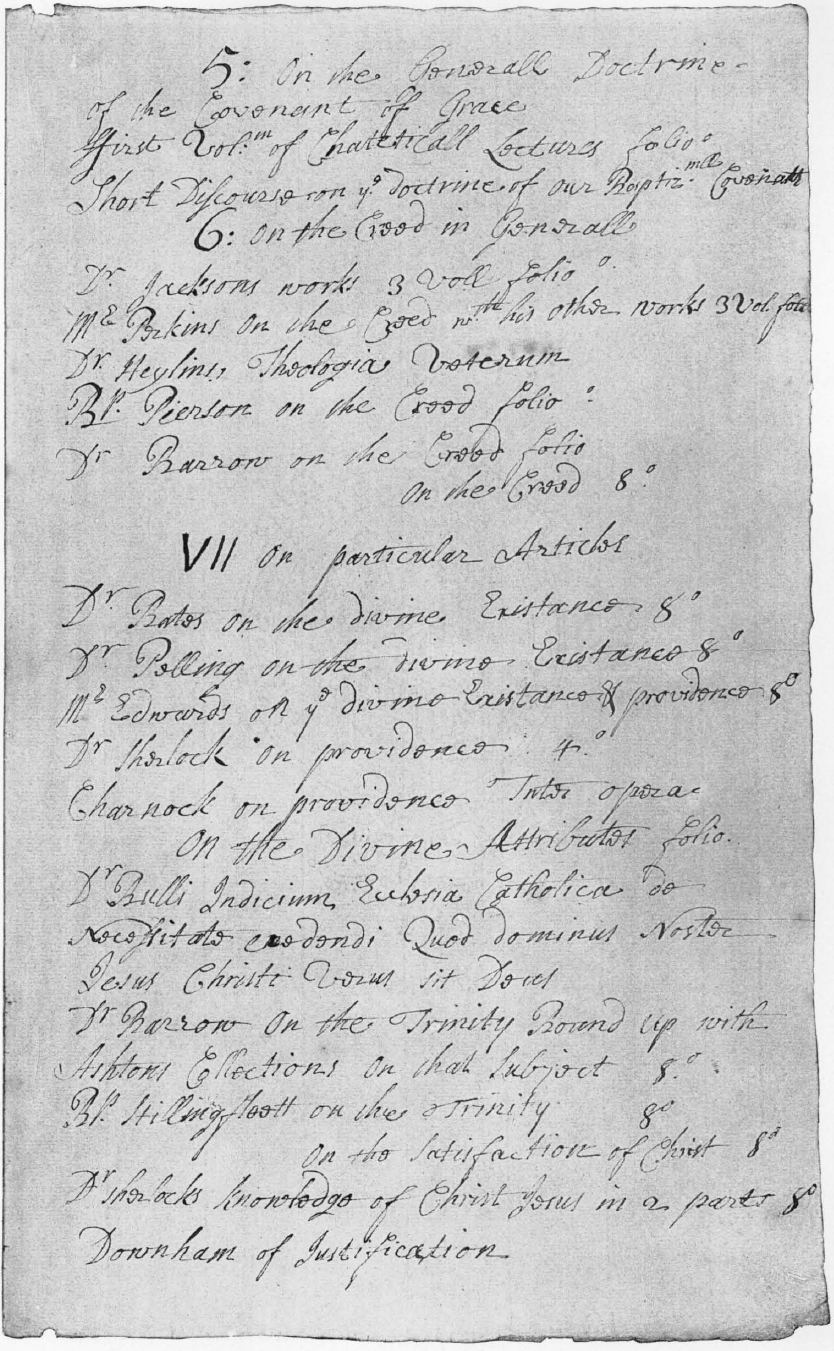 5: On the Generall Doctrine
of the Covenant of Grace
ffirst Vol:m of Chatetticall Lectures folio o
Short Discourse on ye doctrine of our Baptizmll Covenatt
6: On the Creed in Generall
Dr Jacksons works 3 Voll folio o
Mr Perkins On the Creed wth his other works 3 Vol folo
Dr Heylins Theologia Veterum
Bp. Pierson on the Creed folio o
Dr Barrow on the Creed folio
On the Creed 8o
VII On particular Articles
Dr Bates on the divine Existance 8o
Dr Pelling on the divine Existance 8o
Mr Edwards on ye divine Existance & providence 8o
Dr Sherlock on providence 4o
Charnock on providence Inter opera
On the Divine Attributes folio.
Dr Bulli Indicium Ecclesia Catholica de
Necessitate credendi Quod dominus Noster
Jesus Christi Verus sit Deus
Dr Barrow On the Trinity Bound up with
Ashtons Collections On that Subject 8o
Bp Stillingfleett on the Trinity 8o
On the Satisfaction of Christ 8o
Dr Sherlocks knowledge of Christ Jesus in 2 parts 8o
Downham of Justification